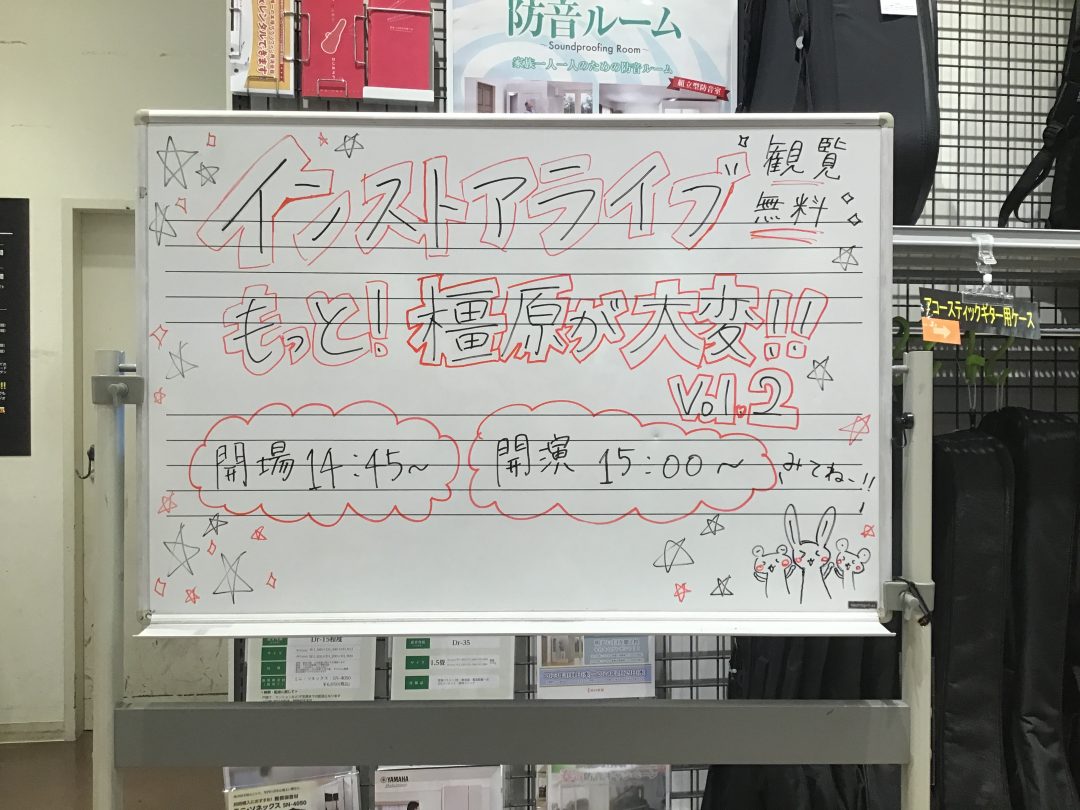 防音ルーム
～Soundproofing Room～
家族一人一人のための防音ルーム
組立型防音室
インストアライブ
観覧
無料
もっと!橿原が大変!!
Vol.2
開場 14:45～
開演 15:00～
みてねー!!
アコースティックギター用ケース
Dr-35
1.5畳
YAMAHA